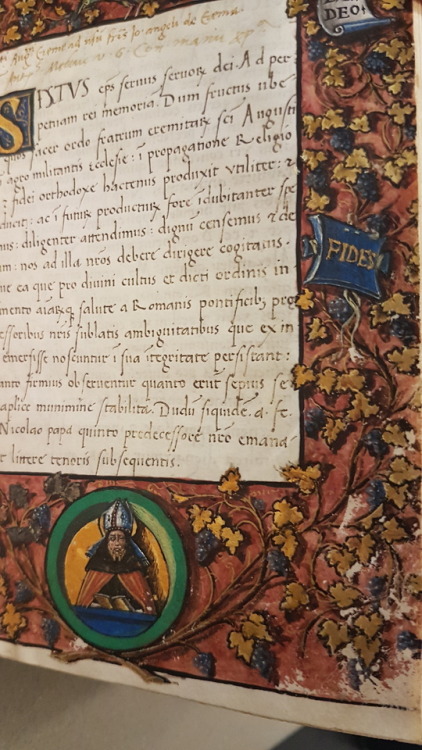 DEO
SIXTVS eps seruus seruoꝝ dei Ad per
petuam rei memoria. Dum fructus vbe
quos sacer ordo fratrum eremitaꝝ sci Augusti
agro militantis ecclesie: i propagatione Religio
fidei orthodoxe hactenus produxit vtiliter: ⁊
ac i futuꝝ producturꝝ fore idubitanter spe
diligenter attendimus: dignu censemus ⁊ de
nos ad illa nros debere dirigere cogitatus.
FIDES
ea que pro diuini cultus et dicti ordinis in
mento aiarꝝ salute a Romanis pontificib, pre
essoribus nris sublatis ambiguitatibus que ex in
emersisse noscuntur i sua itegritate persistant:
firmius obseruentur quanto erut sepius se
aplice munimine stabilita. Dudu siquide. a. fe.
Nicolao papa quinto predecessore nro emana
littere tenoris subsequentis.